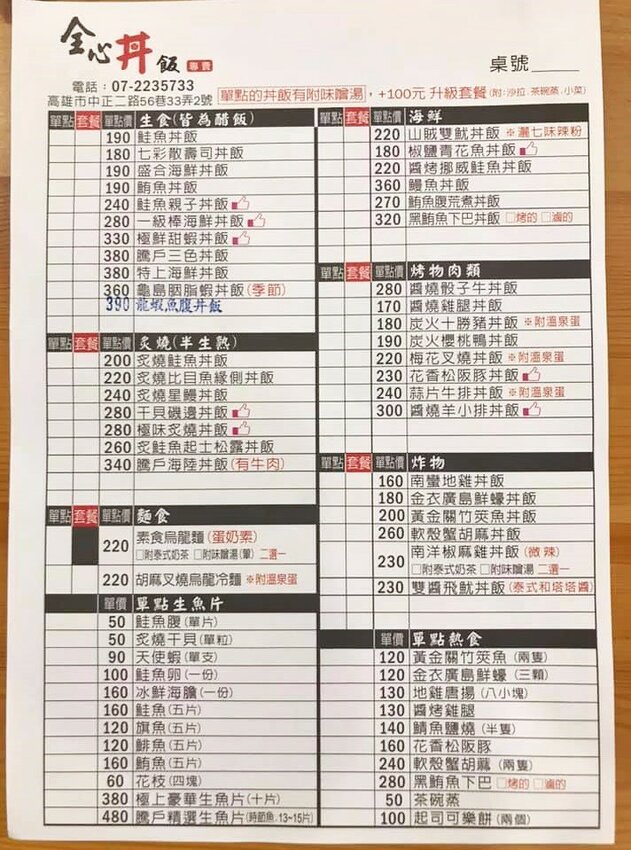 全心丼飯 專賣
桌號
電話：07-2235733
高雄市中正二路56巷33弄2號
單點的丼飯有附味噌湯，+100元 升級套餐(附:沙拉.茶碗蒸.小菜)
單點 套餐 單點價 生食(皆為醋飯)
190 鮭魚丼飯
180 七彩散壽司丼飯
190 盛合海鮮丼飯
190 鮪魚丼飯
240 鮭魚親子丼飯
280 一級棒海鮮丼飯
330 極鮮甜蝦丼飯
380 騰戶三色丼飯
380 特上海鮮丼飯
360 龜島胭脂蝦丼飯(季節)
390 龍蝦魚腹丼飯
單點 套餐 單點價 炙燒(半生熟)
200 炙燒鮭魚丼飯
220 炙燒比目魚緣側丼飯
240 炙燒星鰻丼飯
280 干貝磯邊丼飯
280 極味炙燒丼飯
260 炙鮭魚起士松露丼飯
340 騰戶海陸丼飯(有牛肉)
單點 套餐 單點價 麵食
220 素食烏龍麵(蛋奶素)
□附泰式奶茶 □附味噌湯(單) 二選一
220 胡麻叉燒烏龍冷麵 ※附溫泉蛋
單價 單點生魚片
50 鮭魚腹(單片)
50 炙燒干貝(單粒)
90 天使蝦(單支)
100 鮭魚卵(一份)
160 冰鮮海膽(一份)
160 鮭魚(五片)
120 旗魚(五片)
120 鯡魚(五片)
160 鮪魚(五片)
60 花枝(四塊)
380 極上豪華生魚片(十片)
480 騰戶精選生魚片(時節魚.13~15片)
單點 套餐 單點價 海鮮
220 山賊雙魷丼飯 ※灑七味辣粉
180 椒鹽青花魚丼飯
220 醬烤挪威鮭魚丼飯
360 鰻魚丼飯
270 鮪魚腹荒煮丼飯
320 黑鮪魚下巴丼飯 □烤的 □滷的
單點 套餐 單點價 烤物肉類
280 醬燒骰子牛丼飯
170 醬燒雞腿丼飯
180 炭火十勝豬丼飯 ※附溫泉蛋
190 炭火櫻桃鴨丼飯
220 梅花叉燒丼飯 ※附溫泉蛋
230 花香松阪豚丼飯
240 蒜片牛排丼飯 ※附溫泉蛋
300 醬燒羊小排丼飯
單點 套餐 單點價 炸物
160 南蠻地雞丼飯
180 金衣廣島鮮蠔丼飯
200 黃金關竹筴魚丼飯
260 軟殼蟹胡麻丼飯
230 南洋椒麻雞丼飯(微辣)
□附泰式奶茶 □附味噌湯 二選一
230 雙醬飛魷丼飯(泰式和塔塔醬)
單價 單點熱食
120 黃金關竹筴魚(兩隻)
120 金衣廣島鮮蠔(三顆)
130 地雞唐揚(八小塊)
130 醬烤雞腿
140 鯖魚鹽燒(半隻)
160 花香松阪豚
240 軟殼蟹胡蔴(兩隻)
280 黑鮪魚下巴 □烤的 □滷的
50 茶碗蒸
100 起司可樂餅(兩個)